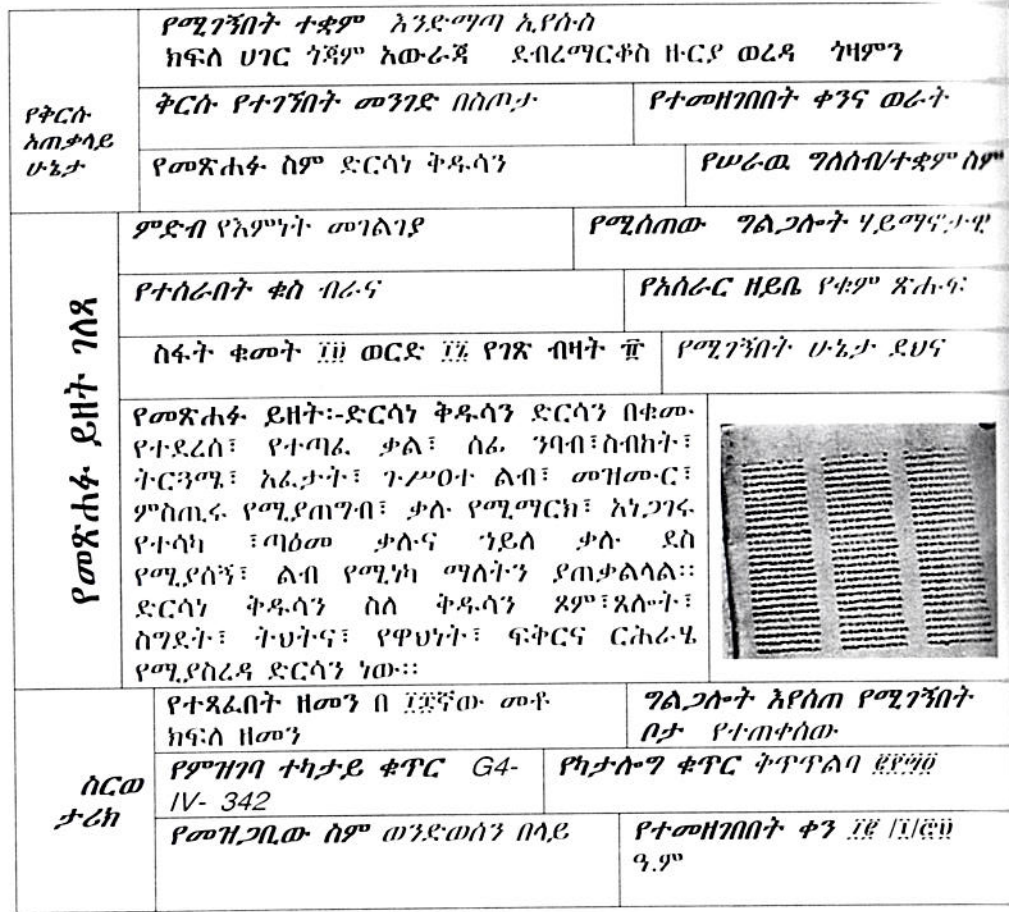 የሚገኝበት ተቋም እንድማጣ ኢየሱስ
ክፍለ ሀገር ጎጃም አውራጃ ደብረማርቆስ ዙርያ ወረዳ ጎዛምን
የቅርሱ
አጠቃላይ
ሁኔታ
ቅርሱ የተገኝበት መንገድ በስጦታ
የተመዘገበበት ቀንና ወራት
የመጽሐፉ ስም ድርሳነ ቅዱሳን
የሠራዉ ግለሰብ/ተቋም ስም
የመጽሐፉ ይዘት ገለጻ
ምድብ የእምነት መገልገያ
የሚሰጠው ግልጋሎት ሃይማኖታዊ
የተሰራበት ቁስ ብራና
የአሰራር ዘይቤ የቁም ጽሑፍ
ስፋት ቁመት ወርድ የገጽ ብዛት
የሚገኝበት ሁኔታ ደህና
የመጽሐፉ ይዘት፡-ድርሳነ ቅዱሳን ድርሳን በቁሙ
የተደረሰ፣ የተጣፈ ቃል፣ ሰፊ ንባብ፣ስብከት፣
ትርጓሜ፣ አፈታት፣ ጉሥዐተ ልብ፣ መዝሙር፣
ምስጢሩ የሚያጠግብ፣ ቃሉ የሚማርክ፣ አነጋገሩ
የተሳካ ፣ጣዕመ ቃሉና ኀይለ ቃሉ ደስ
የሚያሰኝ፣ ልብ የሚነካ ማለትን ያጠቃልላል።
ድርሳነ ቅዱሳን ስለ ቅዱሳን ጾም፣ጸሎት፣
ስግደት፣ ትህትና፣ የዋህነት፣ ፍቅርና ርሕራሄ
የሚያስረዳ ድርሳን ነው።
ስርወ
ታሪክ
የተጻፈበት ዘመን በ መቶ
ክፍለ ዘመን
ግልጋሎት እየሰጠ የሚገኝበት
ቦታ የተጠቀሰው
የምዝገባ ተካታይ ቁጥር G4-
IV- 342
የካታሎግ ቁጥር ቅጥጥልባ
የመዝጋቢው ስም ወንድወሰን በላይ
የተመዘገበበት ቀን
ዓ.ም